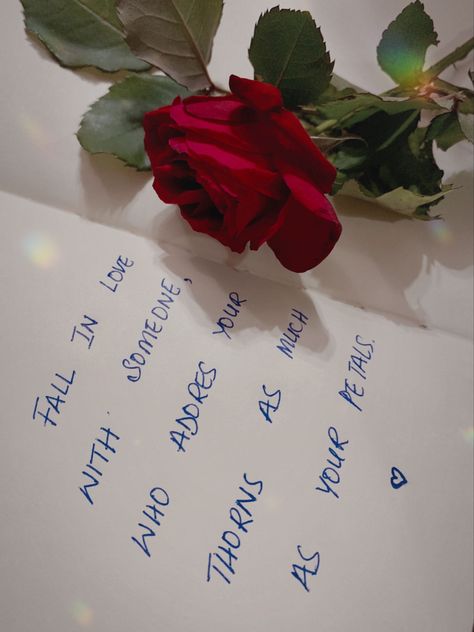 FALL IN LOVE
WITH. SOMEONE,
WHO ADORES YOUR
THORNS AS MUCH
AS YOUR PETALS.